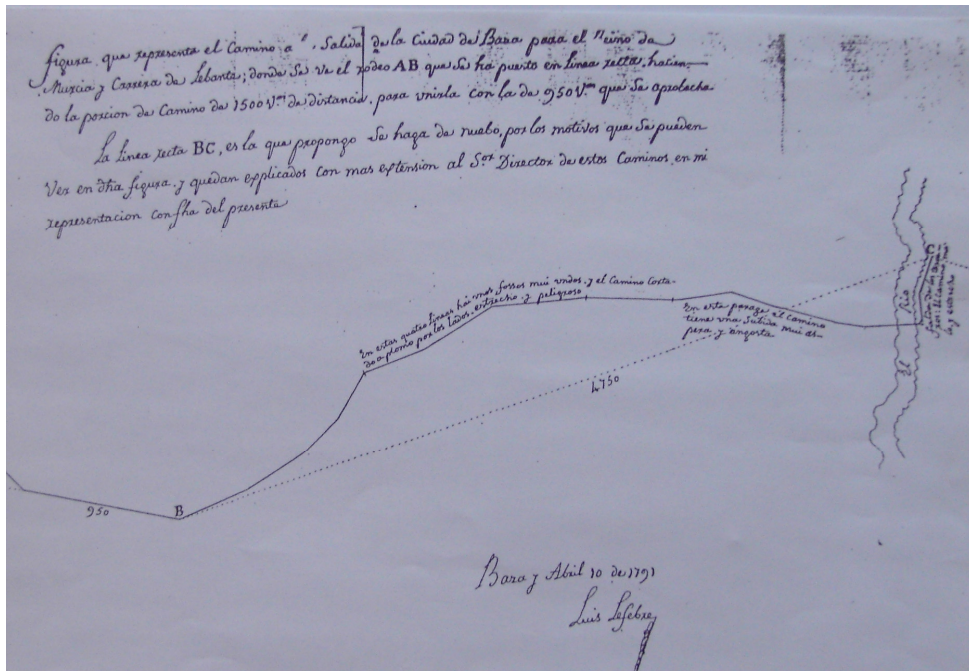 figura, que representa el Camino a Salida de la Ciudad de Baza para el Reino de
Murcia y Carrera de Lebante; donde se ve el rodeo AB que se há puesto en linea recta, hacien-
do la porcion de Camino de 1500 V.s de distancia, para vnirla con la de 950 V.s que se aprobecha
La linea recta BC, es la que propongo se haga de nuebo, por los motivos que se pueden
Ver en dha figura, y quedan explicados con mas extension al S.or Director de estos Caminos, en mi
representacion con fha del presente
En estas quatro lineas hái unos fossos mui ondos, y el Camino Corta-
do a plomo por los lados, estrecho y peligroso
En este parage el Camino
tiene vna Subida mui as-
pera, y angosta
El Rio
4750
950
B
Baza y Abril 10 de 1791
Luis Lefebre